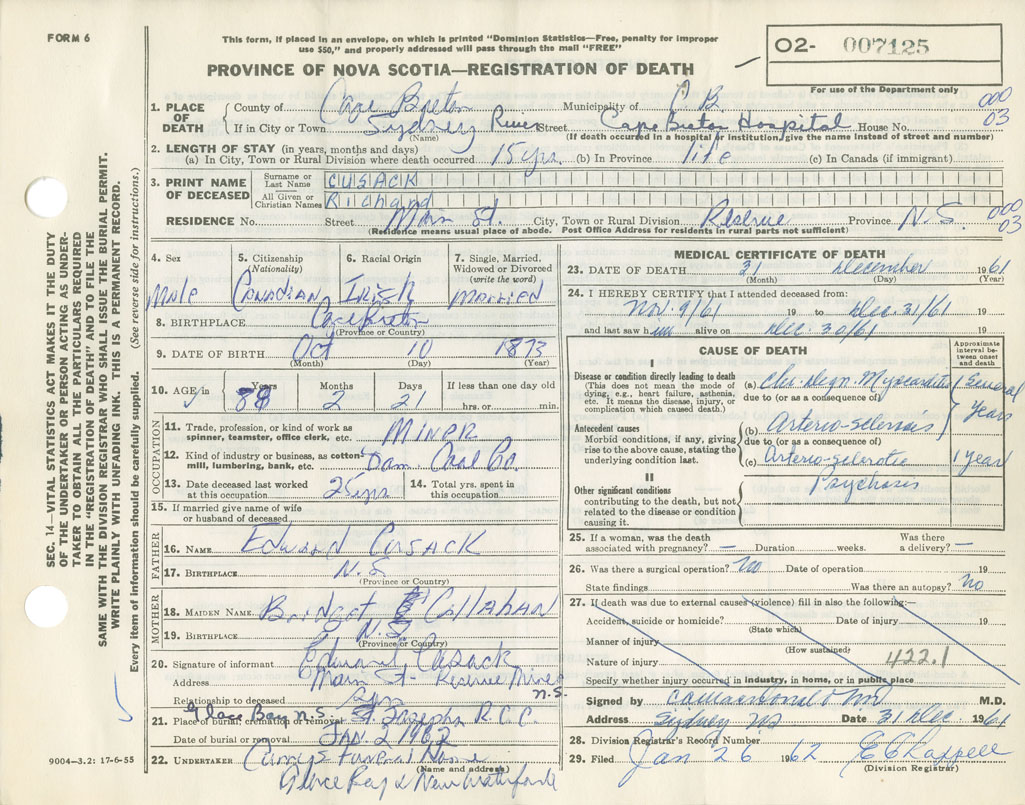 FORM 6
This form, if placed in an envelope, on which is printed "Dominion Statistics—Free, penalty for improper
use $50," and properly addressed will pass through the mail "FREE"
PROVINCE OF NOVA SCOTIA—REGISTRATION OF DEATH
02- 007125
For use of the Department only
000
03
1. PLACE OF DEATH
County of Cape Breton Municipality of C.B.
If in City or Town Sydney River Street Cape Breton Hospital House No.
(Name) (If death occurred in a hospital or institution, give the name instead of street and number)
2. LENGTH OF STAY (in years, months and days)
(a) In City, Town or Rural Division where death occurred 15 yrs. (b) In Province life (c) In Canada (if immigrant)
3. PRINT NAME OF DECEASED
Surname or Last Name CUSACK
All Given or Christian Names Richard
RESIDENCE No. Street Main St. City, Town or Rural Division Reserve Province N.S. 000
03
(Residence means usual place of abode. Post Office Address for residents in rural parts not sufficient)
4. Sex 5. Citizenship (Nationality) 6. Racial Origin 7. Single, Married, Widowed or Divorced (write the word)
Male Canadian Irish Married
8. BIRTHPLACE Cape Breton
(Province or Country)
9. DATE OF BIRTH Oct 10 1873
(Month) (Day) (Year)
10. AGE in Years Months Days If less than one day old
88 2 21 hrs. or min.
OCCUPATION
11. Trade, profession, or kind of work as
spinner, teamster, office clerk, etc. MINER
12. Kind of industry or business, as cotton
mill, lumbering, bank, etc. Dom. Coal Co.
13. Date deceased last worked
at this occupation 25 yrs
14. Total yrs. spent in
this occupation
15. If married give name of wife
or husband of deceased
FATHER
16. NAME Edward Cusack
17. BIRTHPLACE N.S
(Province or Country)
MOTHER
18. MAIDEN NAME Callahan
19. BIRTHPLACE N.S.
(Province or Country)
20. Signature of informant Edward Cusack
Address Main St - Reserve Mines
N.S.
Relationship to deceased Son
21. Place of burial, cremation or removal Glace Bay N.S. St. Josephs R.C.C.
Date of burial or removal JAN. 2 1962
22. UNDERTAKER Currys Funeral Home
(Name and address)
Glace Bay & New Waterford
MEDICAL CERTIFICATE OF DEATH
23. DATE OF DEATH 31 December 1961
(Month) (Day) (Year)
24. I HEREBY CERTIFY that I attended deceased from:
Nov. 9/61 19 to Dec. 31/61 19
and last saw him alive on Dec. 30/61 19
CAUSE OF DEATH
Approximate interval between onset and death
I
Disease or condition directly leading to death
(This does not mean the mode of
dying, e.g., heart failure, asthenia,
etc. It means the disease, injury, or
complication which caused death.)
(a) Chr. Degn. Myocarditis
due to (or as a consequence of)
Several
Years
Antecedent causes
Morbid conditions, if any, giving
rise to the above cause, stating the
underlying condition last.
(b) Arterio-sclerosis
due to (or as a consequence of)
(c) Arterio-sclerotic 1 year
Psychosis
II
Other significant conditions
contributing to the death, but not
related to the disease or condition
causing it.
25. If a woman, was the death
associated with pregnancy? — Duration weeks. Was there
a delivery? —
26. Was there a surgical operation? No Date of operation 19
State findings Was there an autopsy? No
27. If death was due to external causes (violence) fill in also the following:—
Accident, suicide or homicide? Date of injury 19
(State which)
Manner of injury
(How sustained)
Nature of injury 422.1
Specify whether injury occurred in industry, in home, or in public place
Signed by M.D.
Address Sydney NS Date 31 Dec. 1961
28. Division Registrar's Record Number
29. Filed Jan 26 1962
(Division Registrar)
SEC. 14—VITAL STATISTICS ACT MAKES IT THE DUTY
OF THE UNDERTAKER OR PERSON ACTING AS UNDER-
TAKER TO OBTAIN ALL THE PARTICULARS REQUIRED
IN THE "REGISTRATION OF DEATH" AND TO FILE THE
SAME WITH THE DIVISION REGISTRAR WHO SHALL ISSUE THE BURIAL PERMIT.
WRITE PLAINLY WITH UNFADING INK. THIS IS A PERMANENT RECORD.
Every item of information should be carefully supplied. (See reverse side for instructions.)
9004-3.2: 17-6-55